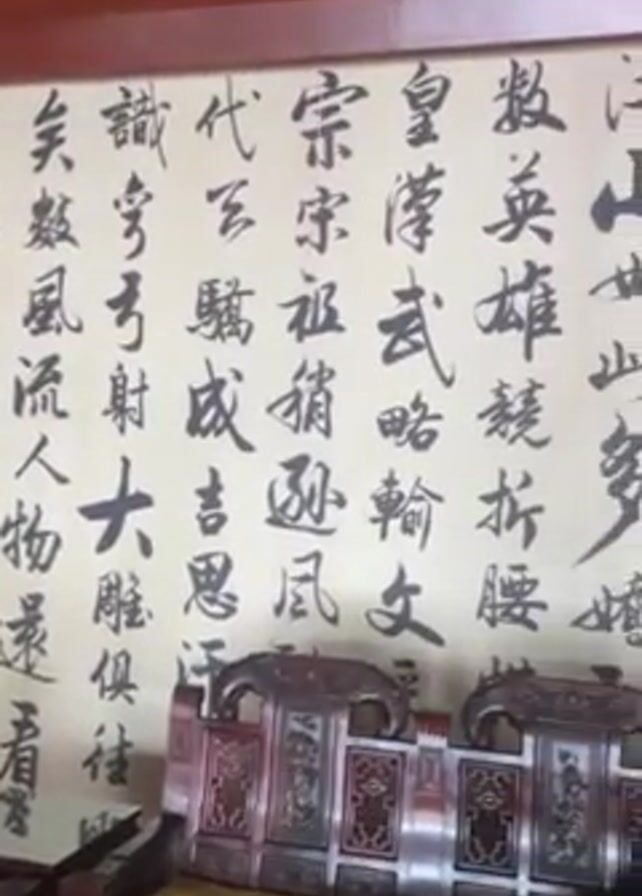 江山如此多嬌
数英雄競折腰
皇漢武略輸文
宗宋祖稍遜风
代天驕成吉思汗
識弯弓射大雕俱往
矣数風流人物還看